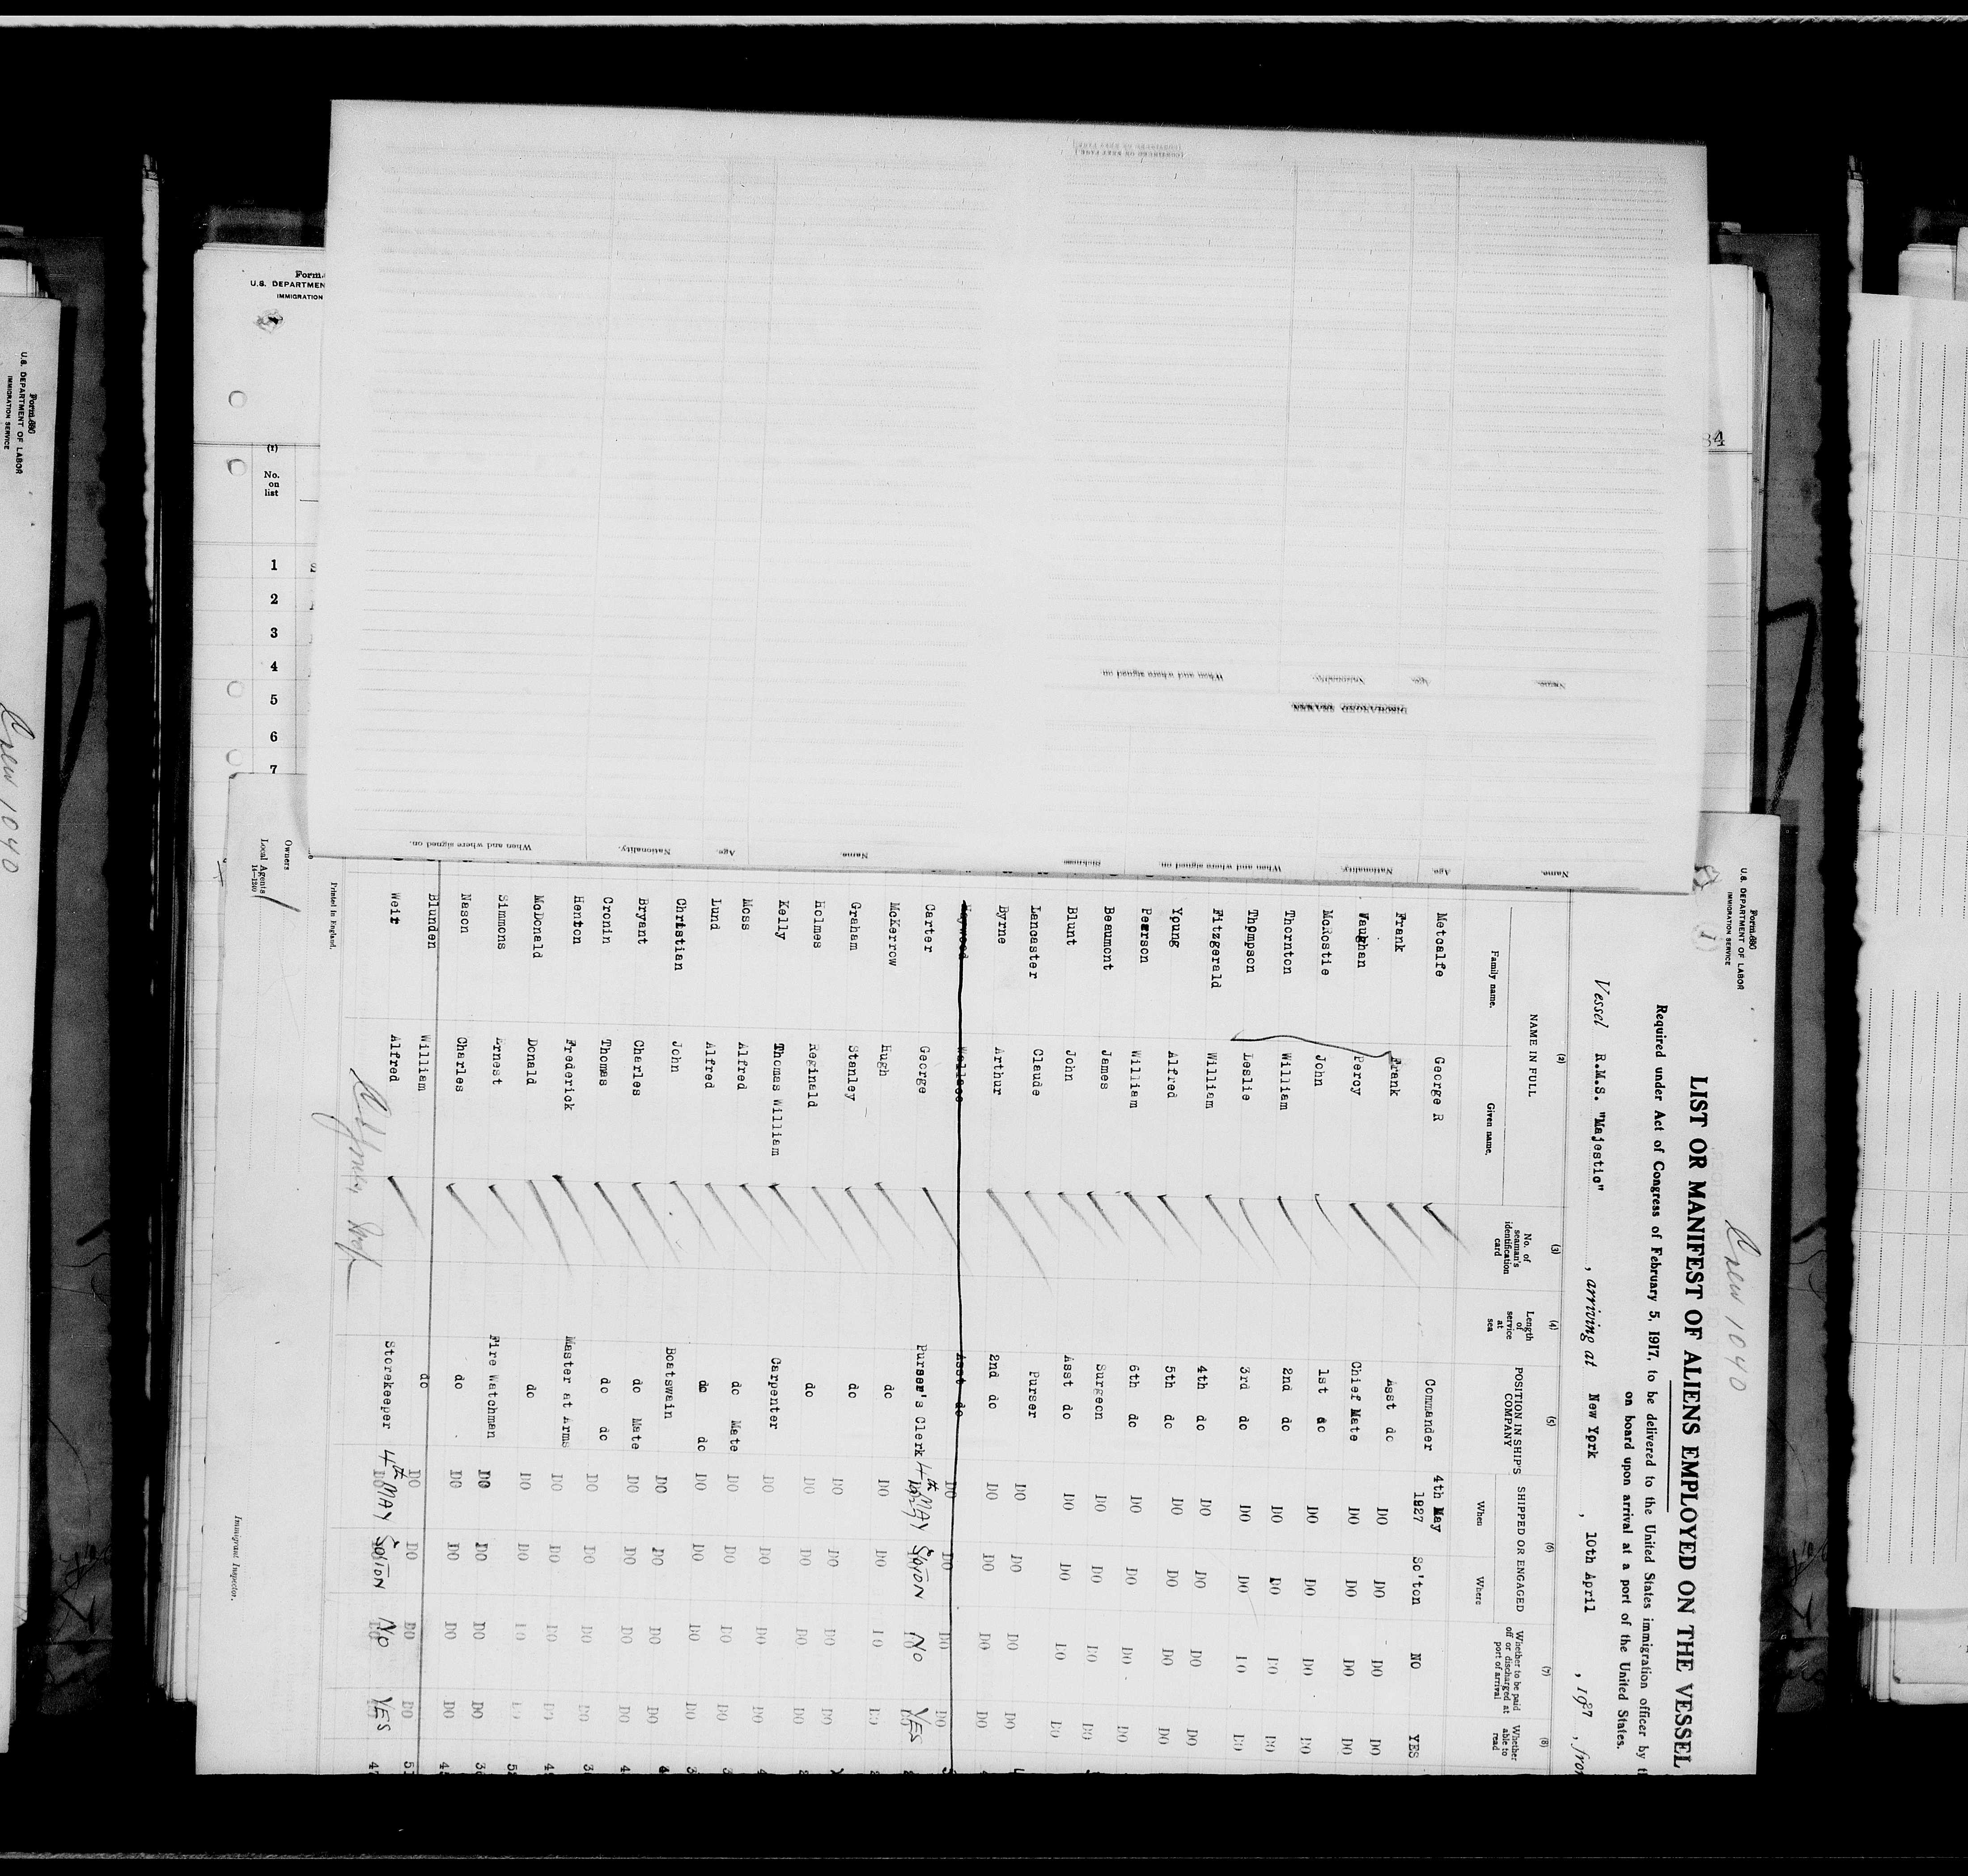 Form 680
U.S. DEPARTMENT OF LABOR
IMMIGRATION SERVICE
Crew 1040
LIST OR MANIFEST OF ALIENS EMPLOYED ON THE VESSEL
Required under Act of Congress of February 5, 1917, to be delivered to the United States immigration officer by
on board upon arrival at a port of the United States.
Vessel R.M.S. "Majestic" , arriving at New York , 10th April , 1927 , from
(2) (3) (4) (5) (6) (7) (8)
NAME IN FULL No. of seaman's identification card Length of service at sea POSITION IN SHIP'S COMPANY SHIPPED OR ENGAGED Whether to be paid off or discharged at port of arrival Whether able to read
Family name. Given name. When Where
Metcalfe George R Commander 4th May 1927 So'ton NO YES
Frank Frank Asst do DO DO DO DO
Vaughan Percy Chief Mate DO DO DO DO
McRostie John 1st do DO DO DO DO
Thornton William 2nd do DO DO DO DO
Thompson Leslie 3rd do DO DO DO DO
Fitzgerald William 4th do DO DO DO DO
Young Alfred 5th do DO DO DO DO
Pearson William 6th do DO DO DO DO
Beaumont James Surgeon DO DO DO DO
Blunt John Asst do DO DO DO DO
Lancaster Claude Purser DO DO DO DO
Byrne Arthur 2nd do DO DO DO DO
Haywood Wallace Asst do DO DO DO DO
Carter George Purser's Clerk 4th MAY 1927 S'OTON NO YES
McKerrow Hugh do DO DO DO DO
Graham Stanley do DO DO DO DO
Holmes Reginald do DO DO DO DO
Kelly Thomas William Carpenter DO DO DO DO
Moss Alfred do Mate DO DO DO DO
Lund Alfred do do DO DO DO DO
Christian John Boatswain DO DO DO DO
Bryant Charles do Mate DO DO DO DO
Cronin Thomas do do DO DO DO DO
Henton Frederick Master at Arms DO DO DO DO
McDonald Donald do DO DO DO DO
Simmons Ernest Fire Watchman DO DO DO DO
Nason Charles do DO DO DO DO
Blunden William do DO DO DO DO
Weir Alfred Storekeeper 4th MAY S'OTON NO YES
Printed in England.
Owners
Local Agents
14—1240
Immigrant Inspector.
Form
U.S. DEPARTMEN
IMMIGRATION
(1)
No.
on
list
1
2
3
4
5
6
7
34
Name. Age. Nationality. When and where signed on.
Name. Age. Nationality. When and where signed on.
Name. Age. Nationality. When and where signed on.
Form 680
U.S. DEPARTMENT OF LABOR
IMMIGRATION SERVICE
Crew 1040